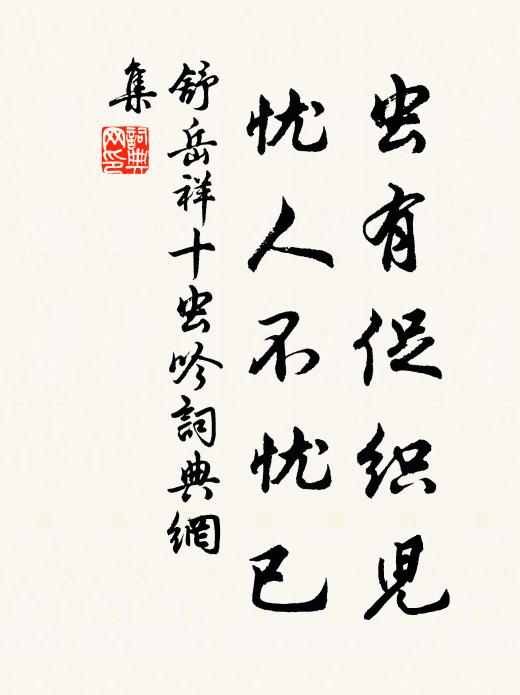 虫有促织児
忧人不忧已
舒岳祥十虫吟詞典網
集
詞典网印